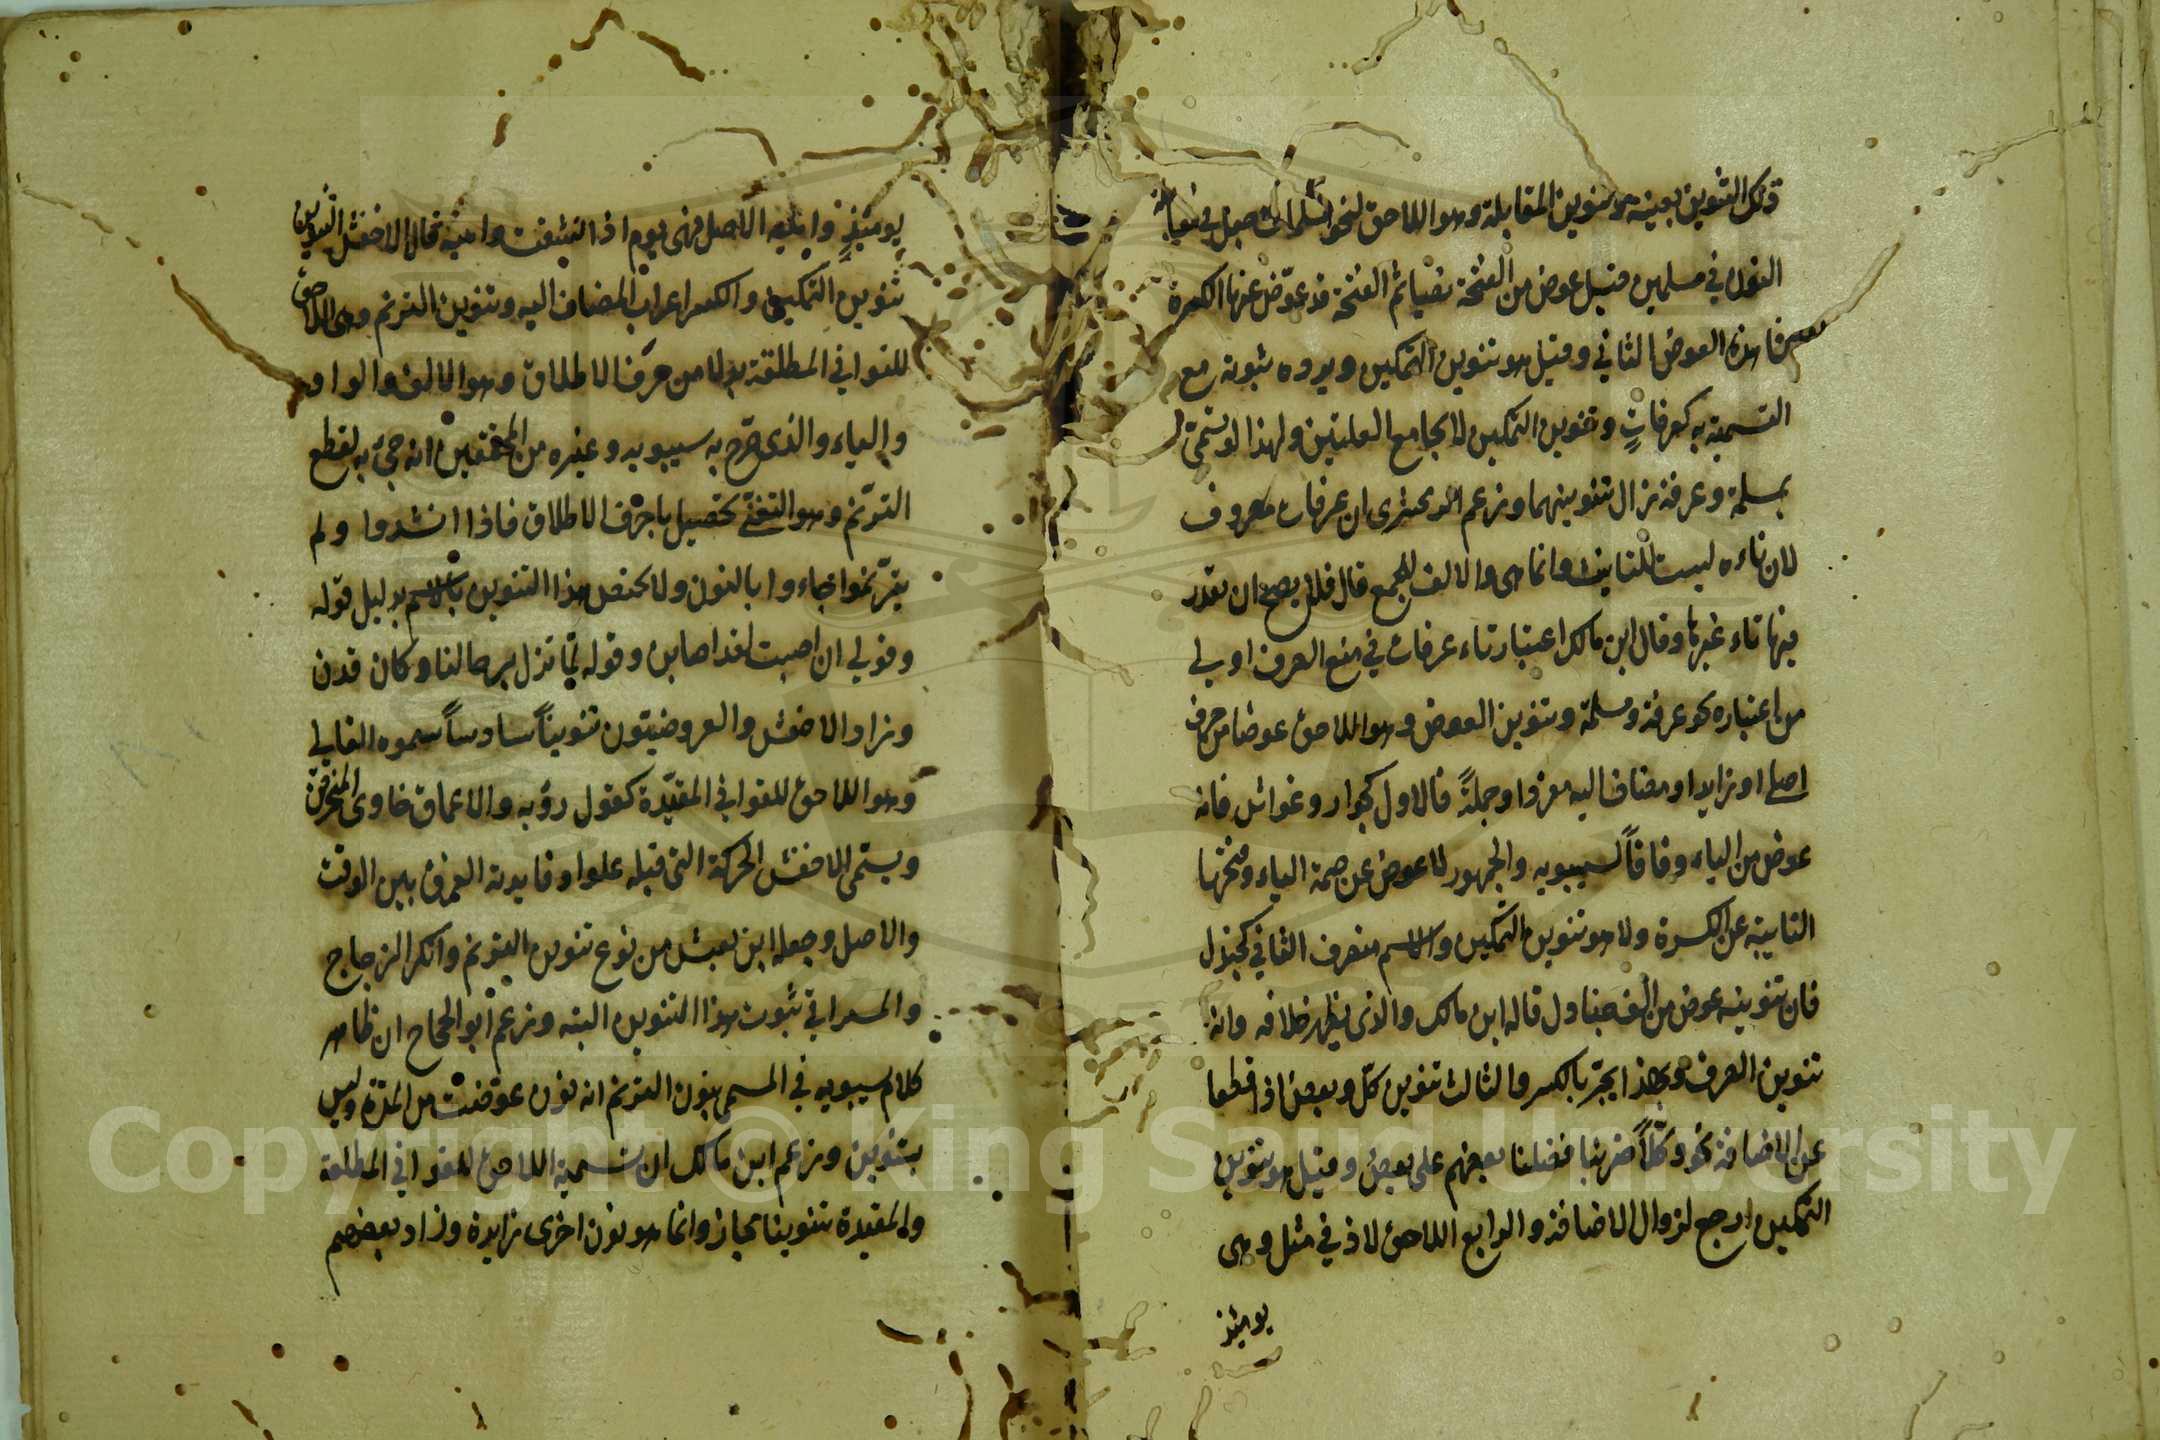 ذلك التنوين بعينه وتنوين المقابلة وهو اللاحق لنحو مسلمات جعل في مقابلة
النون في مسلمين وقيل عوض من الفتحة نصبا ثم الفتحة قد عوّض عنها الكسرة
فما هذا العوض الثاني وقيل هو تنوين التمكين ويرده ثبوته مع
التسمية به كعرفاتٍ وتنوين التمكين لا يجامع العلتين ولهذا لو سُمّي
بمسلمة وعرفة زال تنوينهما وزعم الزمخشري ان عرفات مصروف
لان تاءه ليست للتانيث وانما هى والالف للجمع قال فلا يصح ان تقدر
فيها تاء غيرها وقال ابن مالك اعتبار تاء عرفات في منع الصرف اولى
من اعتباره نحو عرفة ومسلمة وتنوين العوض وهو اللاحق عوضا من حرف
اصلى او زايد او مضاف اليه مفردا وجملةً فالاول كجوار وغواش فانه
عوض من الياء وفاقاً لسيبويه والجمهور لا عوض عن ضمة الياء وفتحتها
النايبة عن الكسرة ولا هو تنوين التمكين والاسم منصرف الثاني كجندل
فان تنوينه عوض من الف جنادل قاله ابن مالك والذى يظهر خلافه وانه
تنوين الصرف ولهذا يجرّ بالكسر والثالث تنوين كلّ وبعض اذا قطعا
عن الاضافة نحو وكلّاً ضربنا فضلنا بعضهم على بعض وقيل هو تنوين
التمكين رجع لزوال الاضافة والرابع اللاحق لاذ في مثل وهى
يومئذ
يومئذٍ واهية الاصل فهى يوم اذ انشقت واهية قال الاخفش التنوين
تنوين التمكين والكسر اعراب المضاف اليه وتنوين الترنم وهى اللاحق
للقوافي المطلقة بدلا من حرف الاطلاق وهو الالف والواو
والياء والذى صرّح به سيبويه وغيره من المحققين انه جيء به لقطع
الترنّم وهو التغنّي يحصل باحرف الاطلاق فاذا انشدوا ولم
يترنّموا جاءوا بالنون ولا يختص هذا التنوين بالاسم بدليل قوله
وقولي ان اصبت لقد اصابن وقوله لمّا تزل برحالنا وكان قدن
وزاد الاخفش والعروضيّون تنويناً سادساً سموه الغالي
وهو اللاحق للقوافي المقيّدة كقول رؤبه والاعماق خاوى المخترقن
ويسمى الاخفش الحركة التى قبله غلوا وفايدته الفرق بين الوقف
والاصل وجعله ابن يعيش من نوع تنوين الترنم وانكر الزجاج
والسيرافي ثبوت هذا التنوين البتة وزعم ابو الحجاج ان ظاهر
كلام سيبويه في المسمى بنون الترنم انه نون عوضت من المدّة وليس
بتنوين وزعم ابن مالك ان تسمية اللاحق للقوافي المطلقة
والمقيدة تنوينا مجاز وانما هو نون اخرى زايدة وزاد بعضهم
Copyright © King Saud University